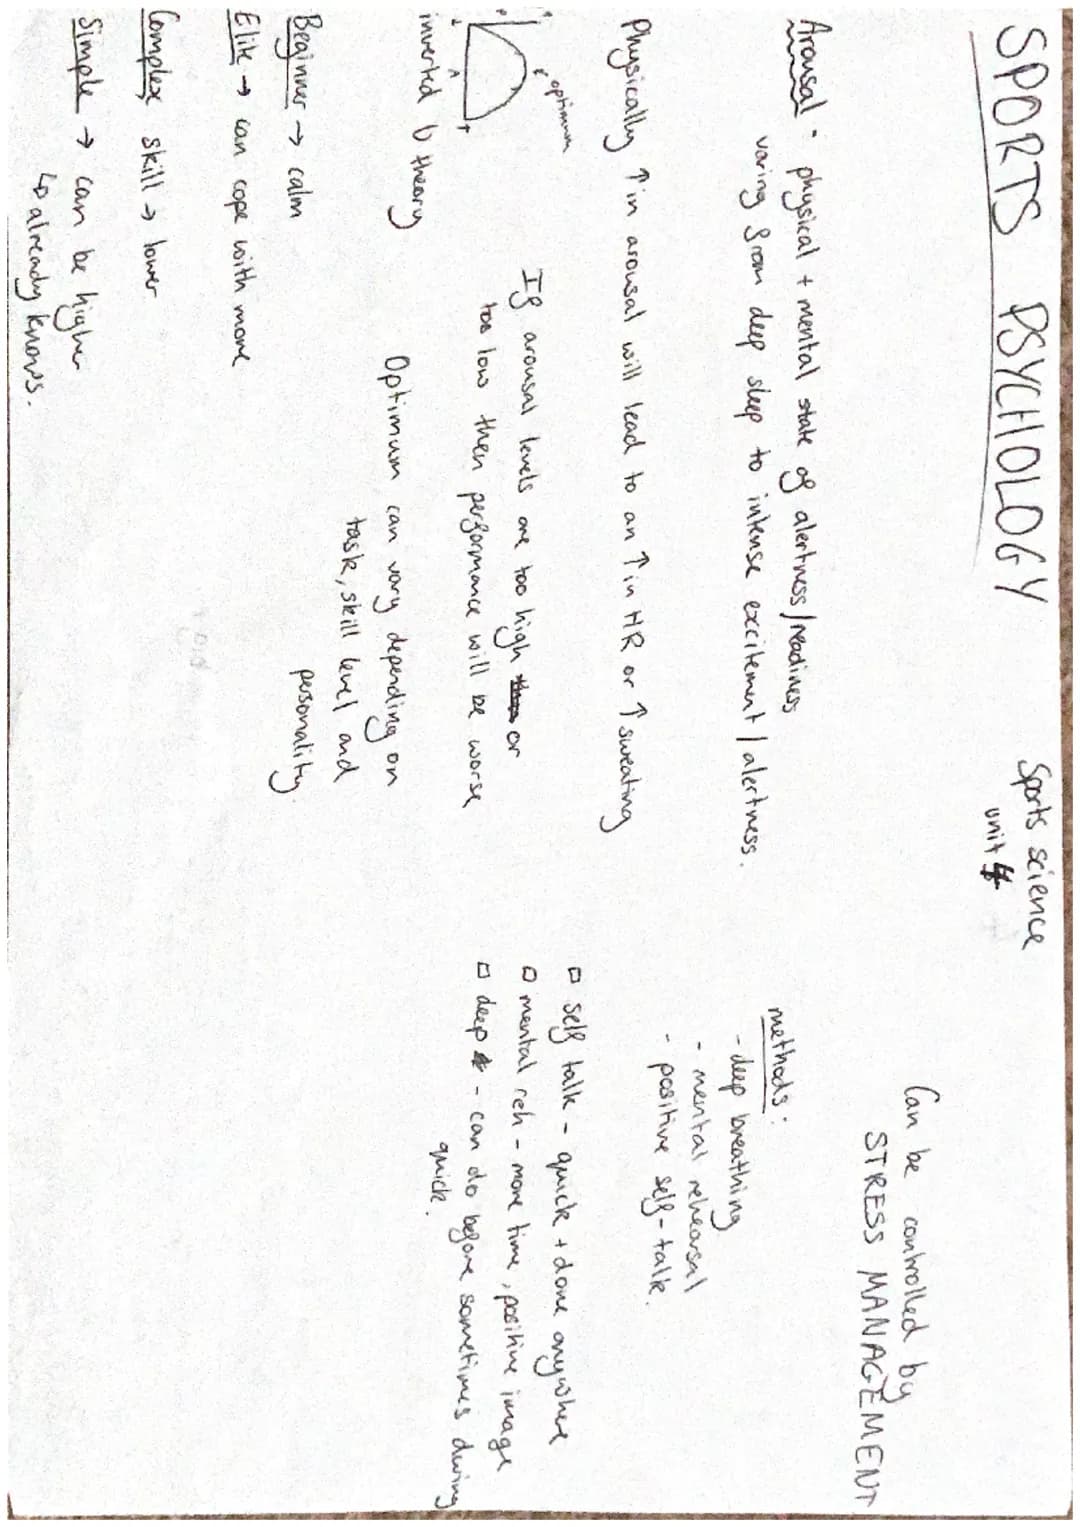 SPORTS PSYCHOLOGY
Sports science
unit 4
Arousal - physical + mental state of alertness/readiness
varing from deep sleep to intense excitement/alertness.
Physically ↑ in arousal will lead to an ↑ in HR or ↑ sweating
optimum
P
A
inverted U theory
If arousal levels are too high or
too low then performance will be worse
Optimum can vary depending on
task, skill level and
personality.
Beginner → calm
Elite → can cope with more
Complex skill → lower
Simple → can be higher
↳ already knows.
Can be controlled by
STRESS MANAGEMENT
methods:
- deep breathing
- mental rehearsal
- positive self-talk.
□ self talk - quick + done anywhere
□ mental reh - more time, positive image
□ deep - can do before sometimes during
quick.